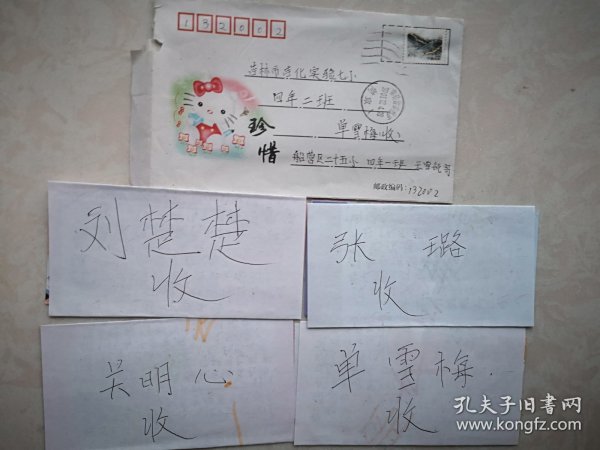 132002
吉林市吉化实验七小
四年二班
单雪梅(收)
珍惜
船营区二十五小 四年一班
邮政编码:132002
刘楚楚
收
张 璐
收
吴明心
收
单雪梅
收
孔夫子旧书网
www.kongfz.com